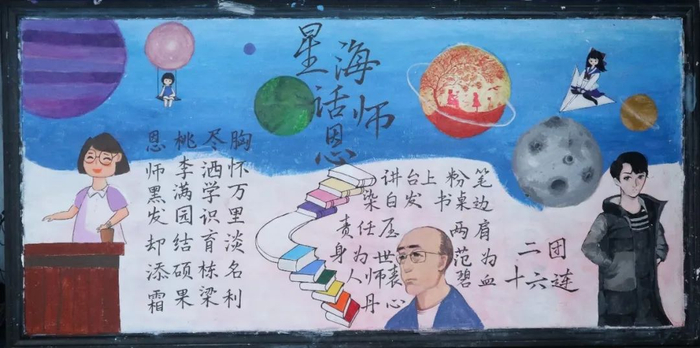 星海
话师
恩
胸怀万里淡名利
尽洒学识育栋梁
桃李满园结硕果
恩师黑发却添霜
讲台上 粉笔
染白发 书桌边
责任压 两肩
身为世范 为
人师表 碧血
丹心
二团
十六连